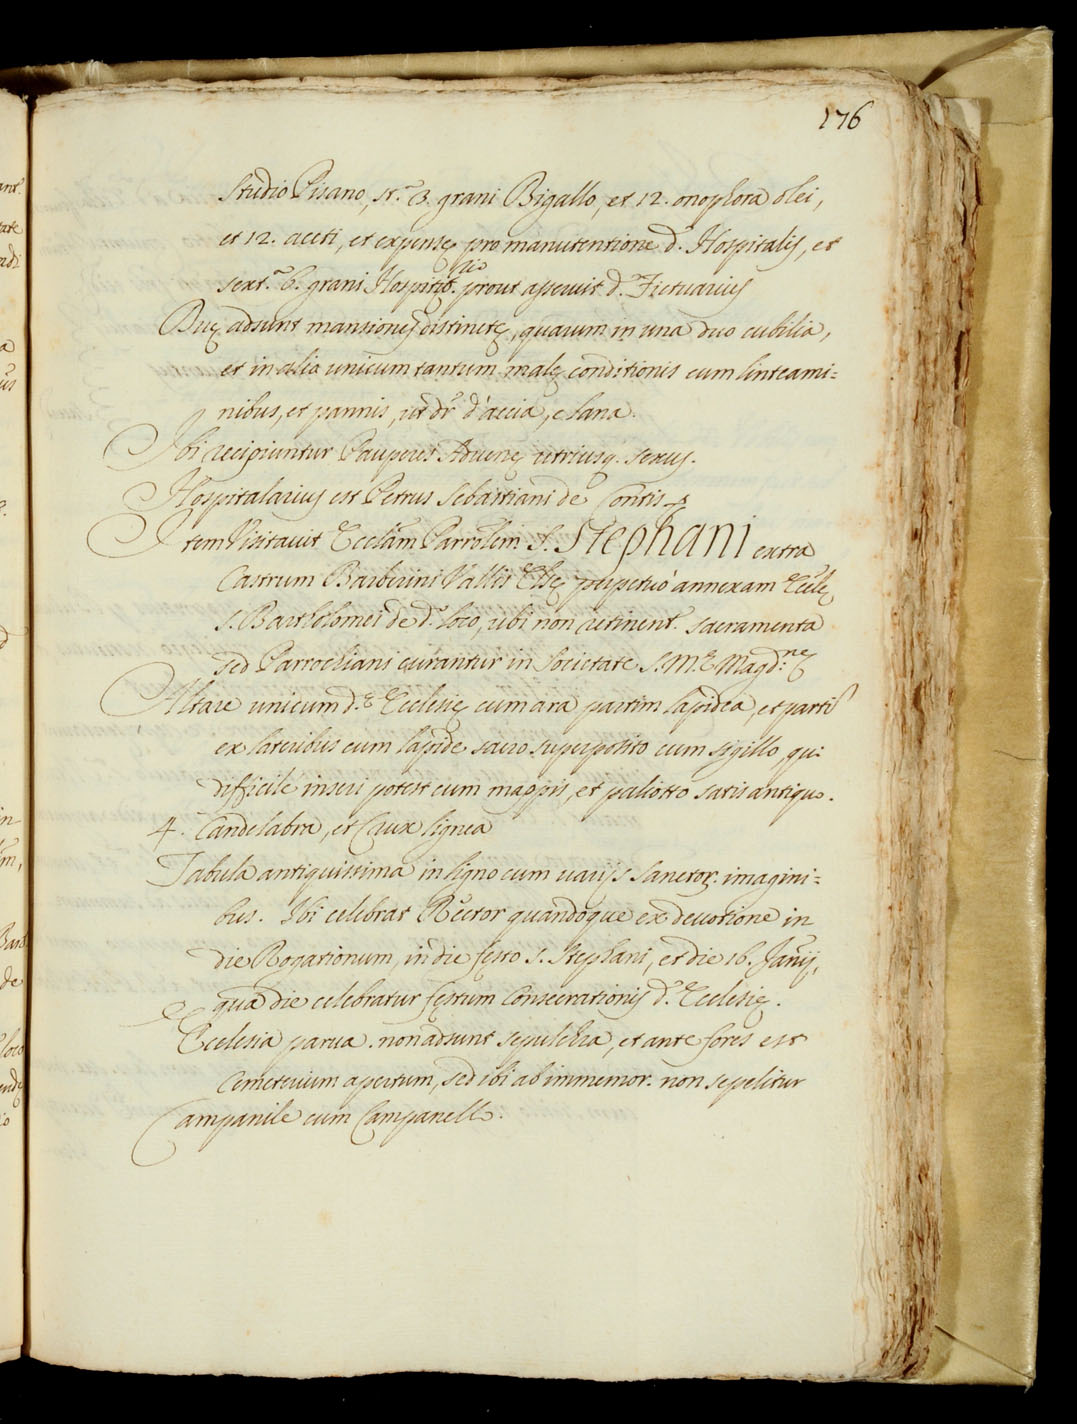 176
Studio Pisano, st.ª 3. grani Bigallo, et 12. onophora olei,
et 12. aceti, et expensę pro manutentione d.ⁱ Hospitalis, et
sext.ª 6. grani prout asseruit d.ˢ Fictuarius
Duę adsunt mansiones distinctę, quarum in una duo cubilia,
et in alia unicum tantum malę conditionis cum linteami=
nibus, et pannis, ut dr d'accia, e lana.
Ibi recipiuntur Pauperes Advenę utriusq. sexus.
Hospitalarius est Petrus Sebastiani de Contis
Item Visitavit Ecclam Parrolem S. Stephani extra
Castrum Barberini Vallis Elsę perpetuò annexam Ecclę
S. Bartholomei de d.º loco, ubi non retinent. sacramenta
sed Parrochiani curantur in Societate S. M.ę Magd.ⁿᵉę
Altare unicum d.ę Ecclesię cum ara partim lapidea, et parti
ex lateribus cum lapide sacro superposito cum sigillo, qui
difficile inseri potest cum mappis, et paliotto satis antiquo.
4. Candelabra, et Crux lignea
Tabula antiquissima in ligno cum varijs Sanctor. imagini=
bus. Ibi celebrat Rector quandoque ex devotione in
die Rogationum, in die festo S. Stephani, et die 16. Janrij,
qua die celebratur festum Consecrationis d.ę Ecclesię.
Ecclesia parva. non adsunt sepulchra, et ante fores est
Cemeterium apertum, sed ibi ab immemor. non sepelitur
Campanile cum Campanell